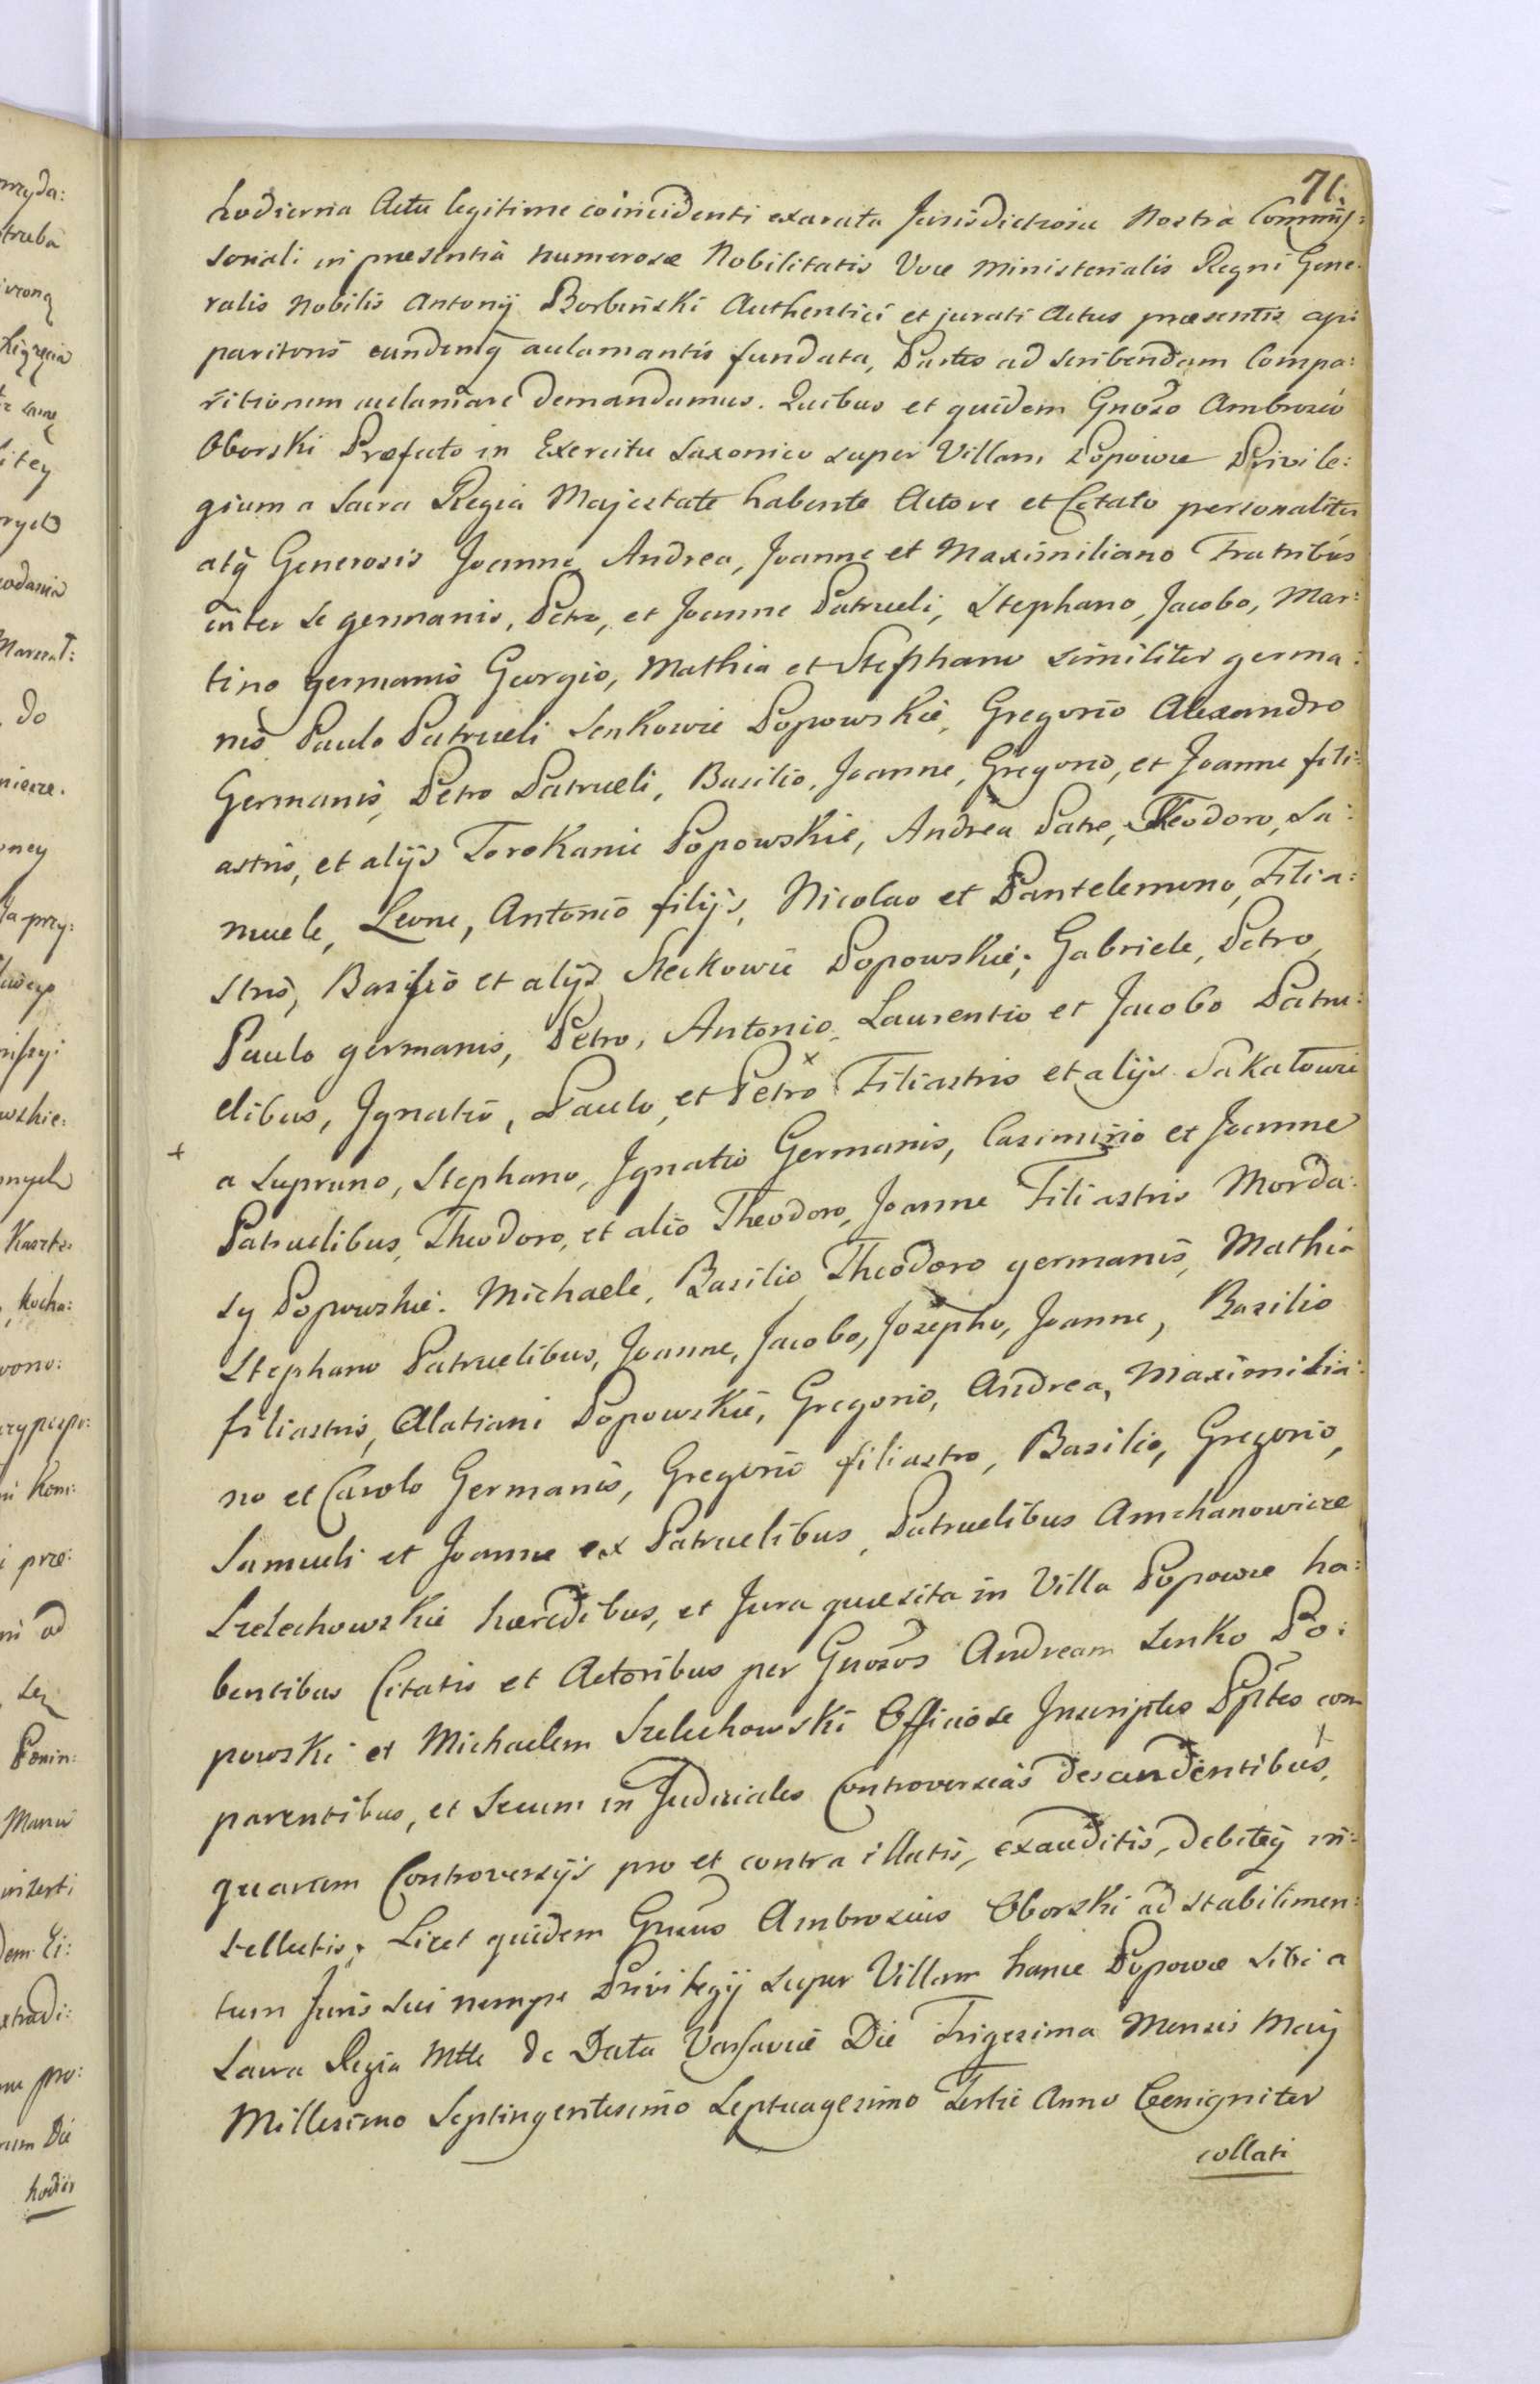 71.
hodierna Actu legitime coincidenti exarata Jurisdictione Nostra Commis:
soriali in præsentia numerosæ Nobilitatis Voce Ministerialis Regni Gene:
ralis Nobilis Antonij Borbuński Authentici et jurati Actus præsentis ap:
paritoris eundemq aclamantis fundata, Partes ad scribendam Compa:
ritionem acclamare demandamus. Quibus et quidem Gnoso Ambrosio
Oborski Præfecto in Exercitu Saxonico super Villam Popowce Privile:
gium a Sacra Regia Majestate habente Actore et Citato personaliter
atq Generosis Joanne Andrea, Joanne et Maximiliano Fratribus
inter se germanis, Petro, et Joanne Patrueli, Stephano, Jacobo, Mar:
tino germanis Georgio, Mathia et Stephano similiter germa:
nis Paulo Patrueli Senkowie Popowskie, Gregorio Alexandro
Germanis, Petro Patrueli, Basilio, Joanne, Gregorio, et Joanne fili:
astris, et alijs Torokanie Popowskie, Andrea Patre, Theodoro, Sa:
muele, Leone, Antonio filijs, Nicolao et Pantelemono, Filia:
stris, Basilio et alijs Steckowie Popowskie; Gabriele, Petro,
Paulo germanis, Petro, Antonio, Laurentio et Jacobo Patru:
elibus, Ignatio, Paulo, et Petro x Filiastris et alijs Sakatowie
+ a Supruno, Stephano, Ignatio Germanis, Casimirio et Joanne
Patruelibus, Theodoro, et alio Theodoro, Joanne Filiastris Morda:
sy Popowskie. Michaele, Basilio, Theodoro germanis, Mathia
Stephano Patruelibus, Joanne, Jacobo, Josepho, Joanne, Basilio
filiastris, Alatiani Popowskie, Gregorio, Andrea, Maximilia:
no et Carolo Germanis, Gregorio filiastro, Basilio, Gregorio,
Samueli et Joanne ex Patruelibus, Patruelibus Amchanowicze
Szelechowskie hæredibus, et Jura quæsita in Villa Popowce ha:
bentibus Citatis et Actoribus per Gnosos Andream Senko Po:
powski et Michaelem Szelechowski Officiose Inscriptos Pptes com
parentibus, et Secum in Judiciales Controversias descendentibus,
quarum Controversijs pro et contra illatis, exauditis, debiteq in:
tellectis; Licet quidem Gnsus Ambrosius Oborski ad stabilimen:
tum Juris sui nempe Privilegij super Villam hance Popowce sibi a
Sacra Regia Mtte de Data Varsaviæ Die Trigesima Mensis Maij
Millesimo Septingentesimo Septuagesimo Tertio Anno benigniter
collati